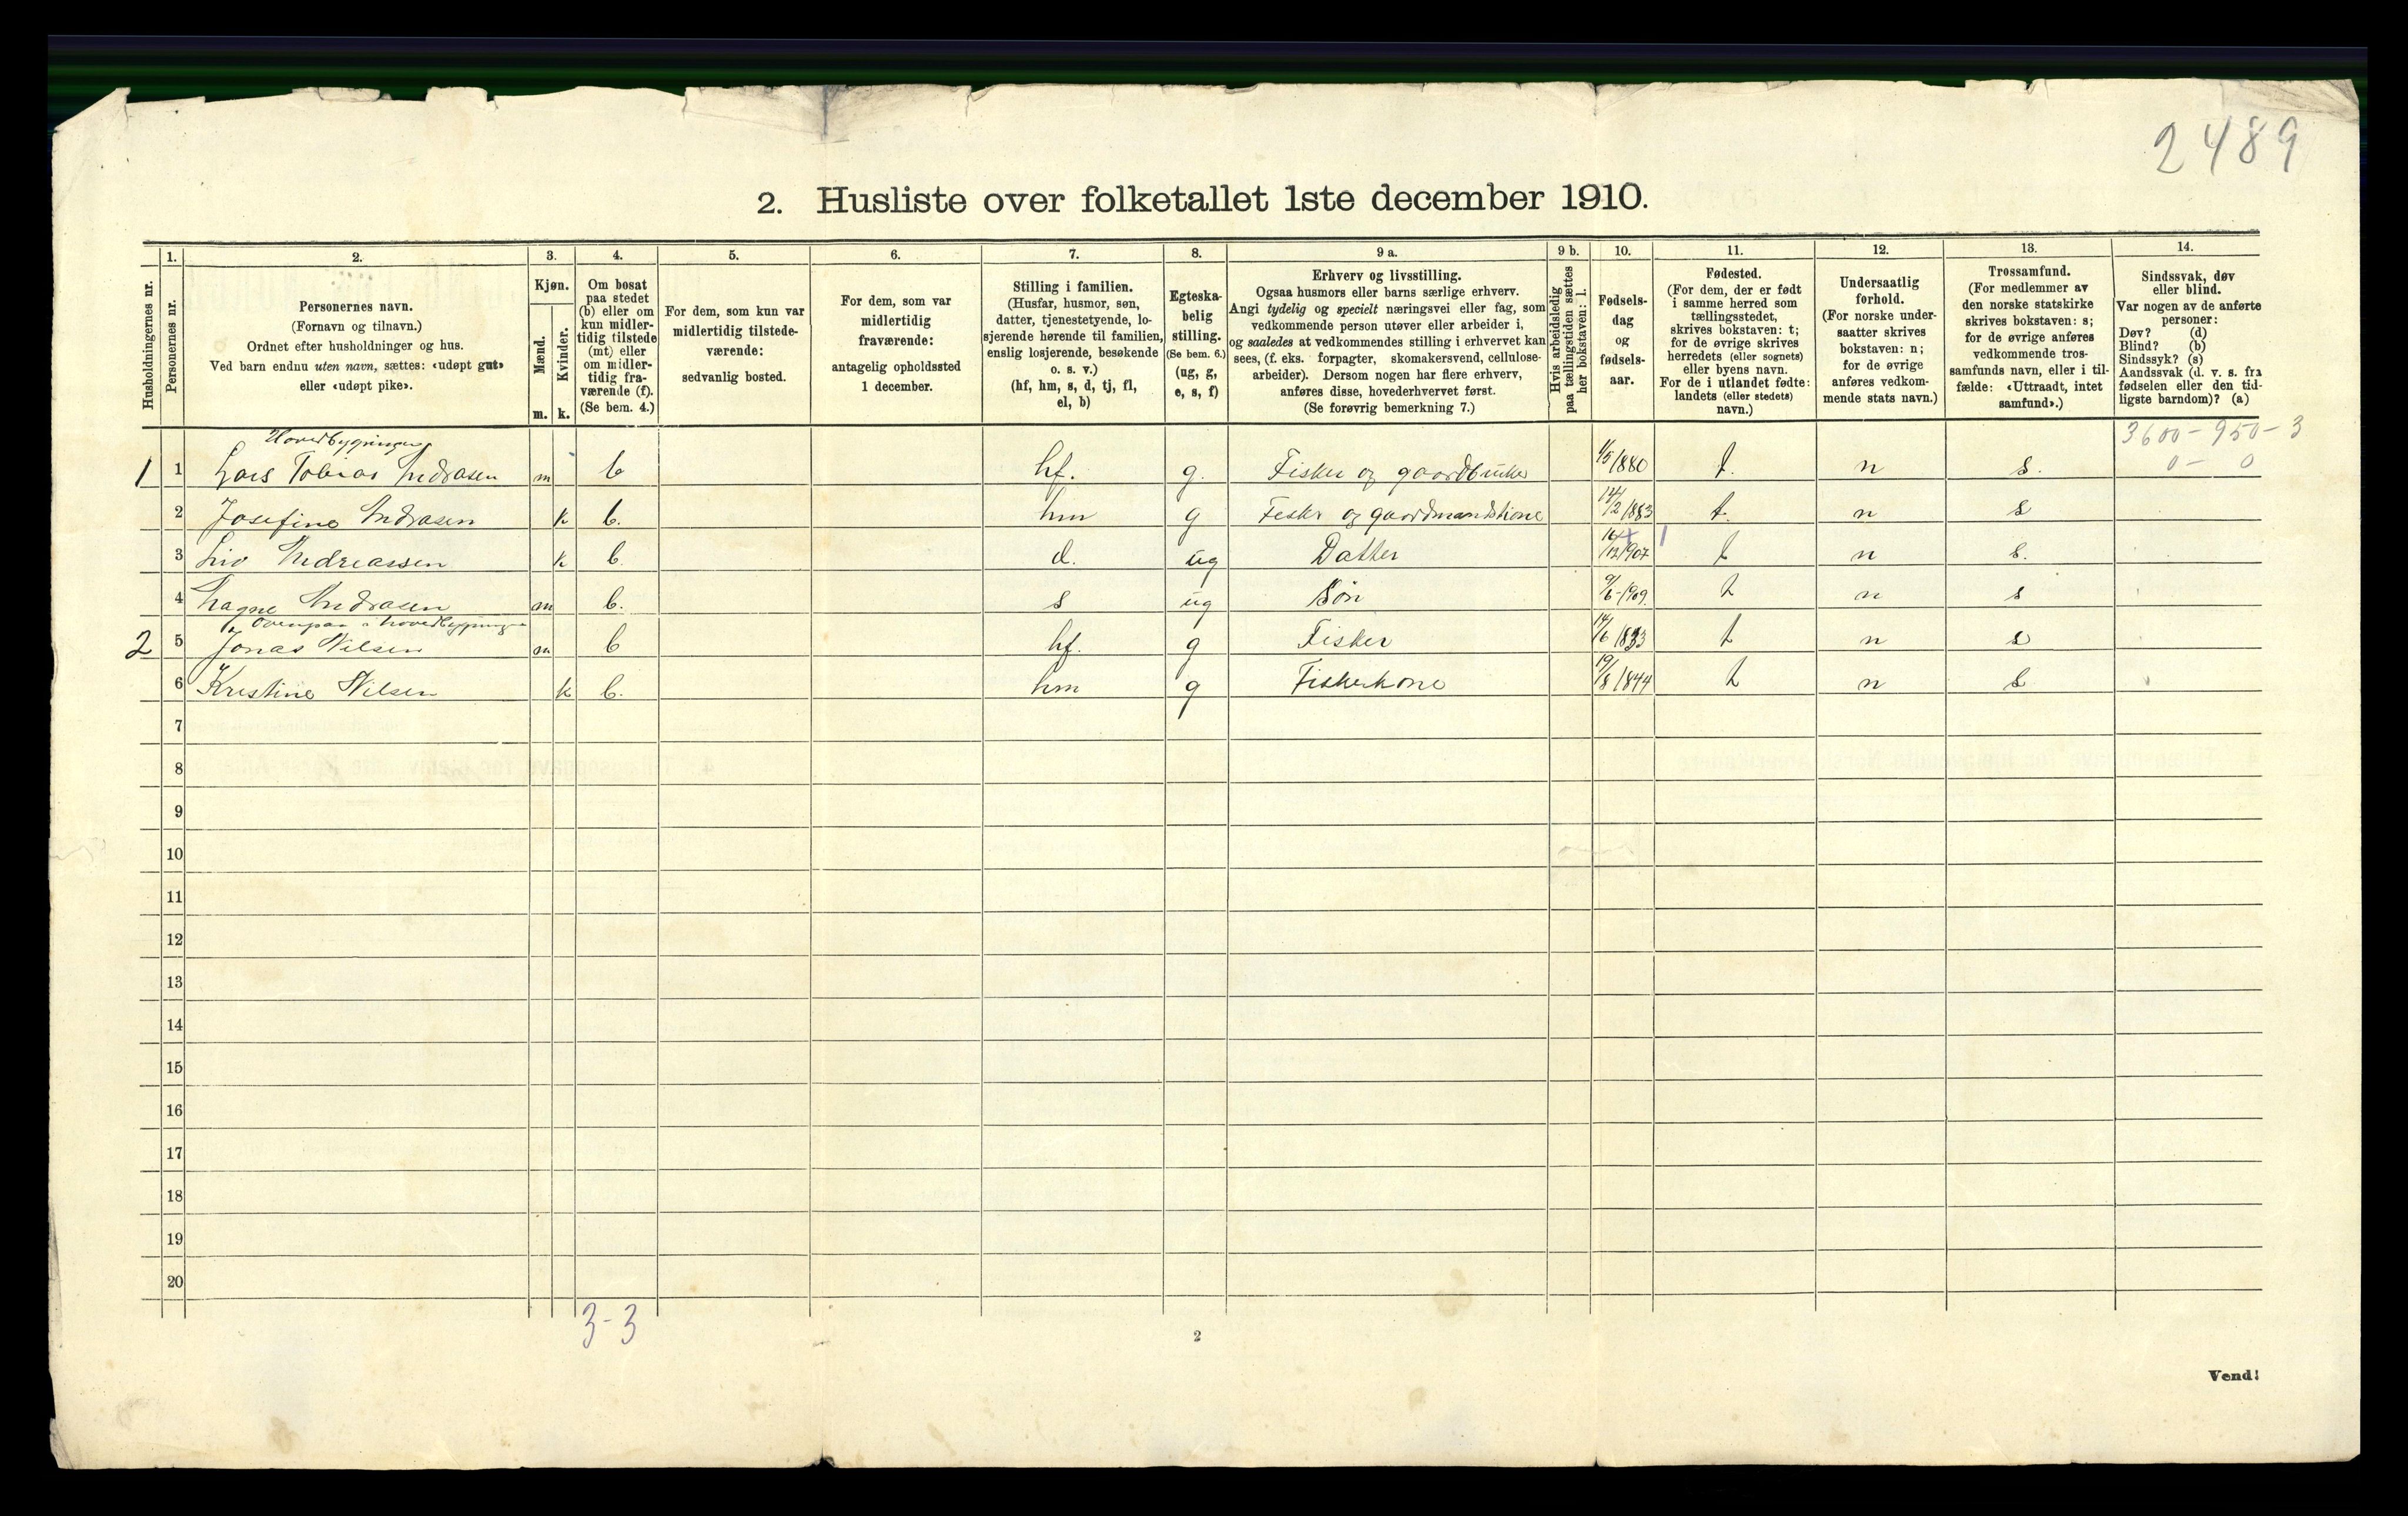 2489
2. Husliste over folketallet 1ste december 1910.
Husholdningernes nr.
1.
Personernes nr.
2.
Personernes navn.
(Fornavn og tilnavn.)
Ordnet efter husholdninger og hus.
Ved barn endnu uten navn, sættes: «udøpt gut»
eller «udøpt pike».
3.
Kjøn.
Mænd.
Kvinder.
m. k.
4.
Om bosat
paa stedet
(b) eller om
kun midler-
tidig tilstede
(mt) eller
om midler-
tidig fra-
værende (f).
(Se bem. 4.)
5.
For dem, som kun var
midlertidig tilstede-
værende:
sedvanlig bosted.
6.
For dem, som var
midlertidig
fraværende:
antagelig opholdssted
1 december.
7.
Stilling i familien.
(Husfar, husmor, søn,
datter, tjenestetyende, lo-
sjerende hørende til familien,
enslig losjerende, besøkende
o. s. v.)
(hf, hm, s, d, tj, fl,
el, b)
8.
Egteska-
belig
stilling.
(Se bem. 6.)
(ug, g,
e, s, f)
9 a.
Erhverv og livsstilling.
Ogsaa husmors eller barns særlige erhverv.
Angi tydelig og specielt næringsvei eller fag, som
vedkommende person utøver eller arbeider i,
og saaledes at vedkommendes stilling i erhvervet kan
sees, (f. eks. forpagter, skomakersvend, cellulose-
arbeider). Dersom nogen har flere erhverv,
anføres disse, hovederhvervet først.
(Se forøvrig bemerkning 7.)
9 b.
Hvis arbeidsledig
paa tællingstiden sættes
her bokstaven: l.
10.
Fødsels-
dag
og
fødsels-
aar.
11.
Fødested.
(For dem, der er født
i samme herred som
tællingsstedet,
skrives bokstaven: t;
for de øvrige skrives
herredets (eller sognets)
eller byens navn.
For de i utlandet fødte:
landets (eller stedets)
navn.)
12.
Undersaatlig
forhold.
(For norske under-
saatter skrives
bokstaven: n;
for de øvrige
anføres vedkom-
mende stats navn.)
13.
Trossamfund.
(For medlemmer av
den norske statskirke
skrives bokstaven: s;
for de øvrige anføres
vedkommende tros-
samfunds navn, eller i til-
fælde: «Uttraadt, intet
samfund».)
14.
Sindssvak, døv
eller blind.
Var nogen av de anførte
personer:
Døv? (d)
Blind? (b)
Sindssyk? (s)
Aandssvak (d. v. s. fra
fødselen eller den tid-
ligste barndom)? (a)
3600 - 950 - 3
0 - 0
Hovedbygningen
1 1 Lars Tobias Andrasen m b hf. g. Fisker og gaardbruker 1/5 1880 t. n s.
2 Josefine Andrasen k b. hm g Fiskr og gaardmandskone 14/2 1883 t. n s
3 Liv Andreassen k b d. ug Datter 16/12 1907 t n s.
4 Magne Andrasen m b. s ug Søn 9/6 - 1909. t n s
Ovenpaa i hovedbygningen
2 5 Jonas Nilsen m b hf. g Fisker 14/6 1833 t n s
6 Kristine Nilsen k b. hm g Fiskerkone 19/8 1844 t n s
7
8
9
10
11
12
13
14
15
16
17
18
19
20
3-3
2
Vend!